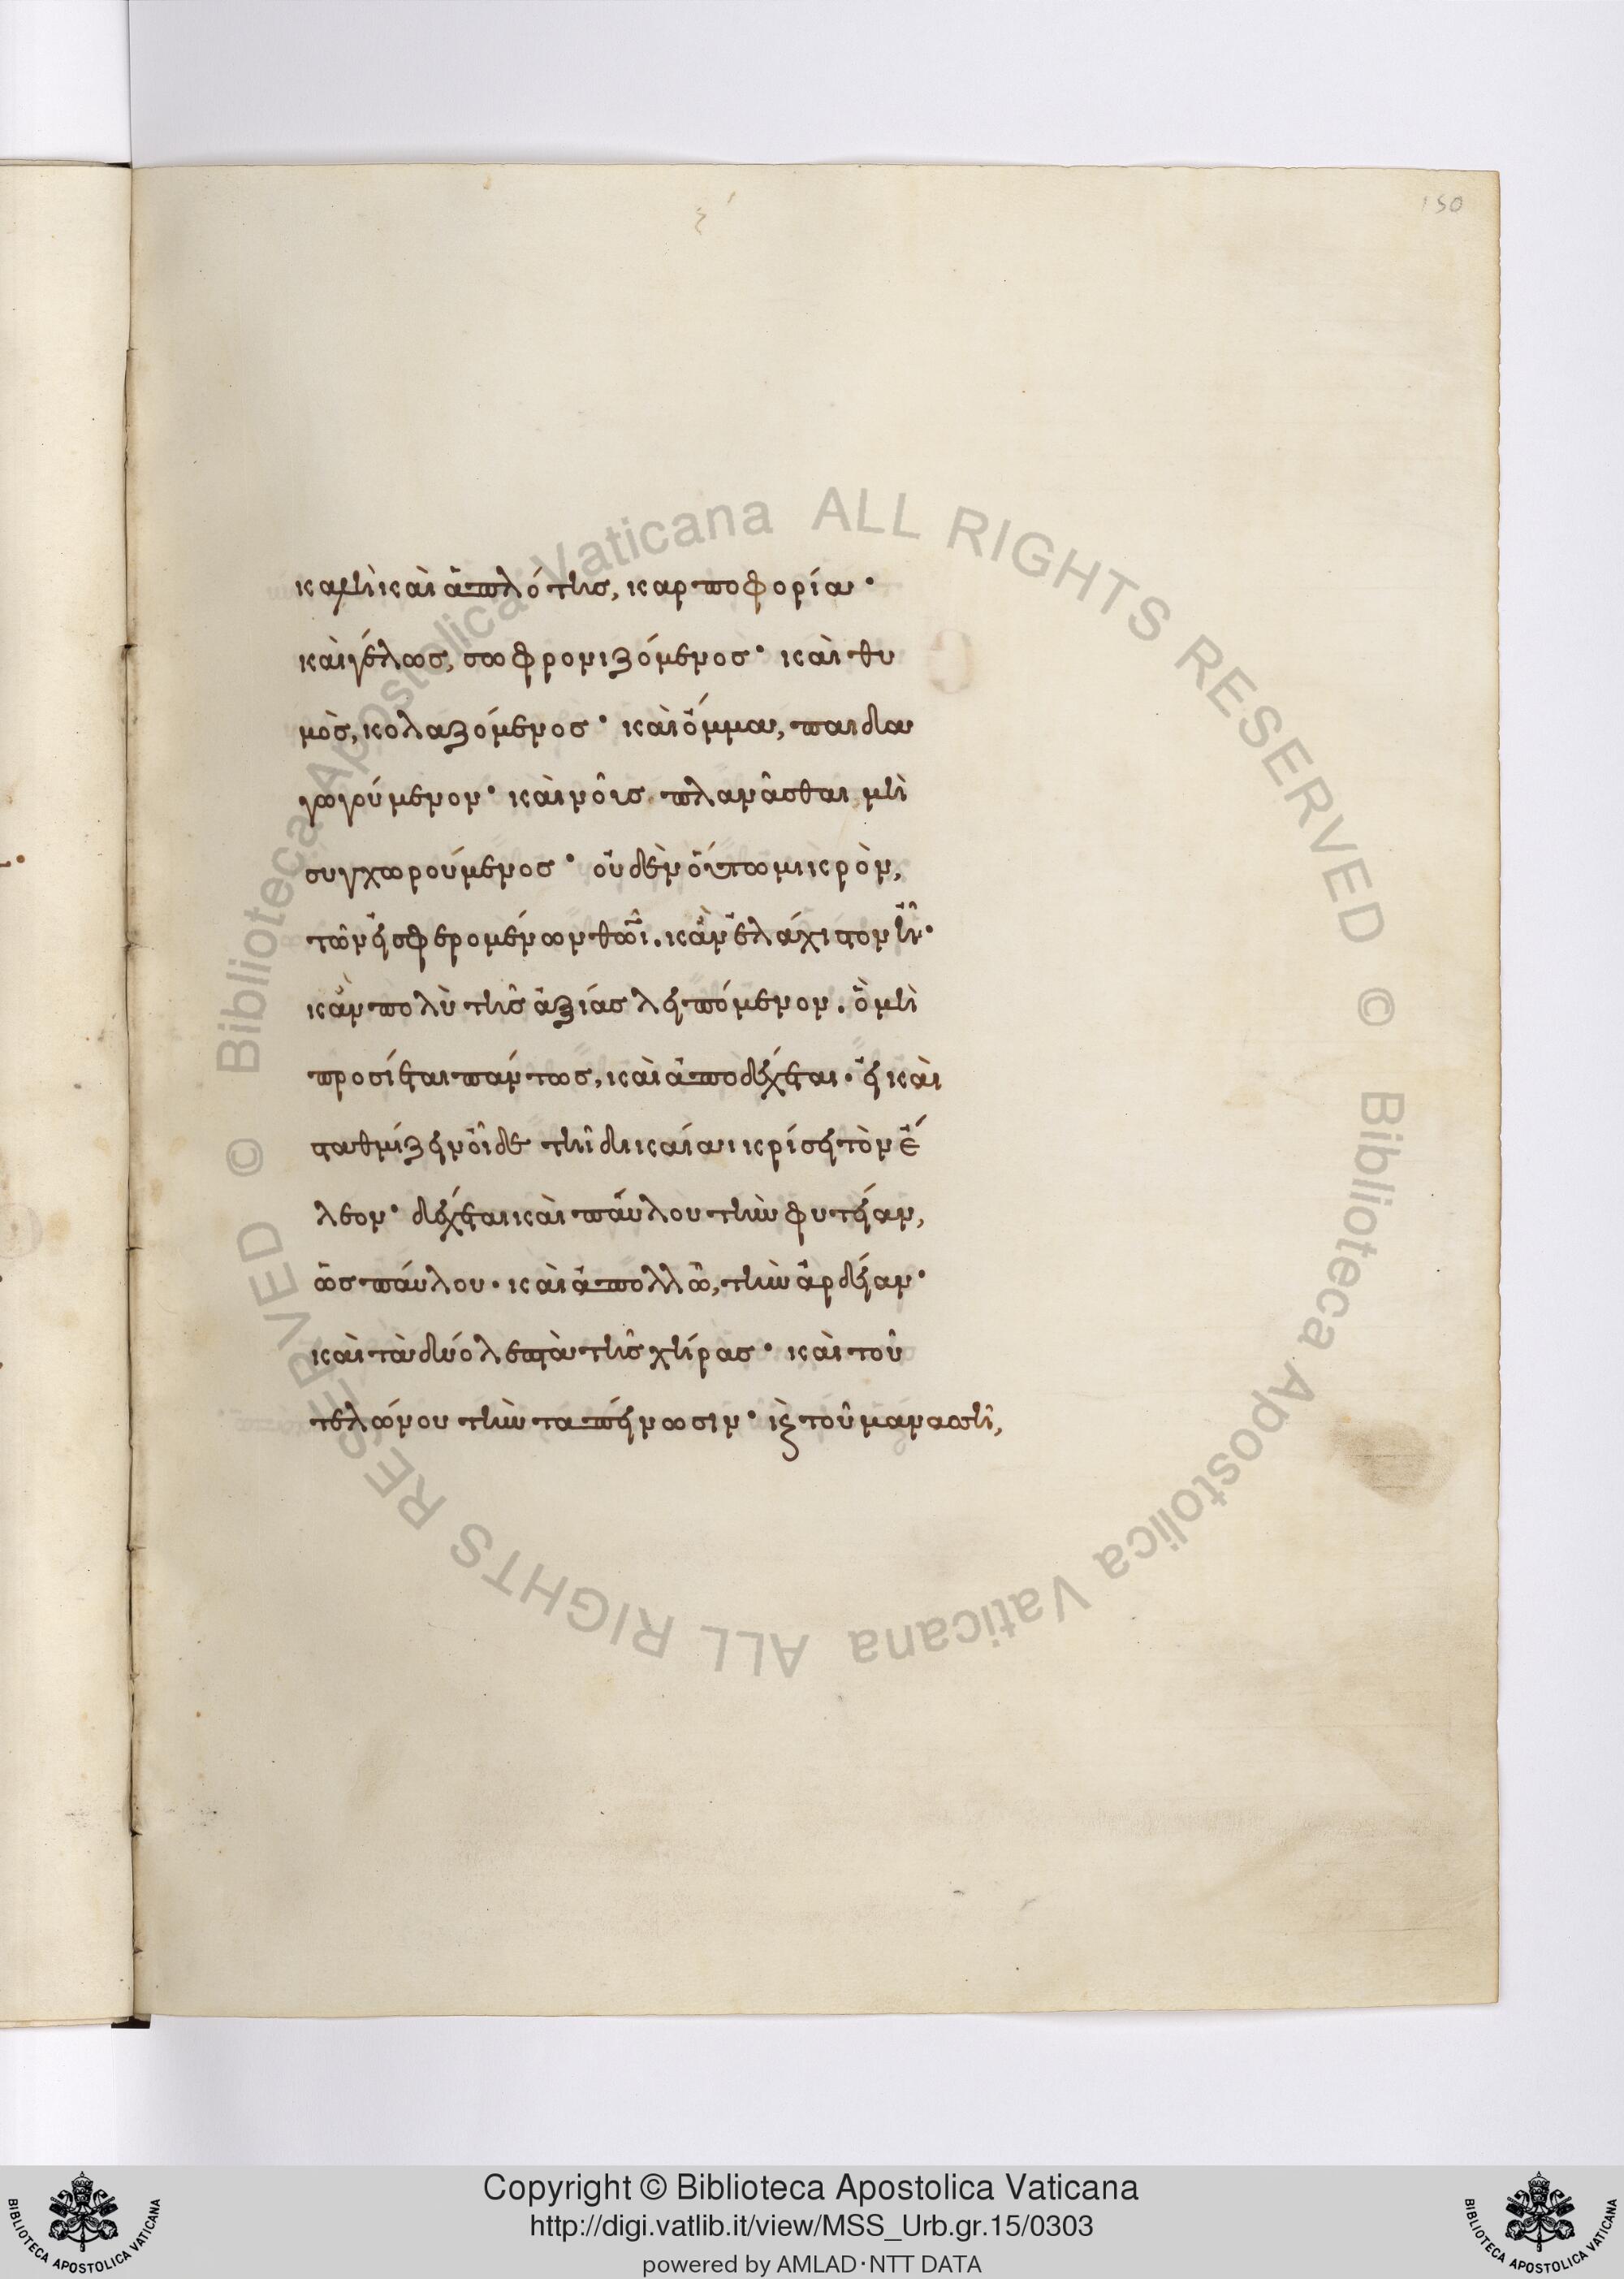 ξʹ
150
καμὴ καὶ ἁπλότης, καρποφορία·
καὶ γέλως, σωφρονιζόμενος· καὶ θυ
μὸς, κολαζόμενος· καὶ ὄμμα, παιδα
γωγούμενον· καὶ νοῦς πλανᾶσθαι μὴ
συγχωρούμενος· οὐδὲν οὕτω μικρὸν,
τῶν εἰσφερομένων θωῖ. κἂν ἐλάχιστον ᾖ·
κἂν πολὺ τῆς ἀξίας λειπόμενον. ὃ μὴ
προσίεται πάντως, καὶ ἀποδέχεται. εἰ καὶ
σταθμίζειν οἶδε τῆ δικαίαι κρίσει τὸν ἔ
λεον· δέχεται καὶ παύλου τὴν φυτείαν,
ὡς παύλου. καὶ ἀπολλῶ, τὴν ἀρδείαν·
καὶ τὰ δύο λεπτὰ τῆς χήρας· καὶ τοῦ
τελώνου τὴν ταπείνωσιν· κ τοῦ μανασσῆ,
Biblioteca Apostolica Vaticana ALL RIGHTS RESERVED ©
Biblioteca Apostolica Vaticana ALL RIGHTS RESERVED ©
Copyright © Biblioteca Apostolica Vaticana
http://digi.vatlib.it/view/MSS_Urb.gr.15/0303
powered by AMLAD·NTT DATA
BIBLIOTECA APOSTOLICA VATICANA
BIBLIOTECA APOSTOLICA VATICANA